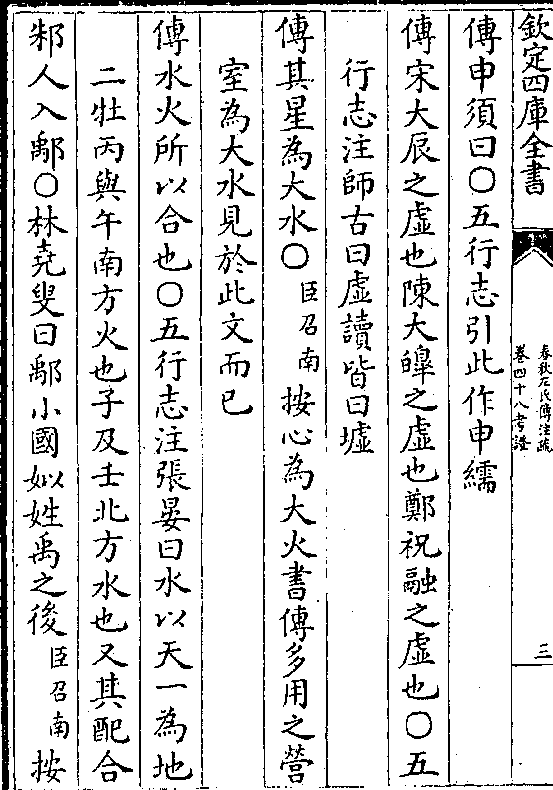 欽定四庫全書
春秋左氏傳注疏
卷四十八考證
三
傳申須曰〇五行志引此作申繻
傳宋大辰之虛也陳大皞之虛也鄭祝融之虛也〇五
行志注師古曰虛讀皆曰墟
傳其星為大水〇臣召南按心為大火書傳多用之營
室為大水見於此文而已
傳水火所以合也〇五行志注張晏曰水以天一為地
二牡丙與午南方火也子及壬北方水也又其配合
邾人入鄅〇林堯叟曰鄅小國姒姓禹之後臣召南按